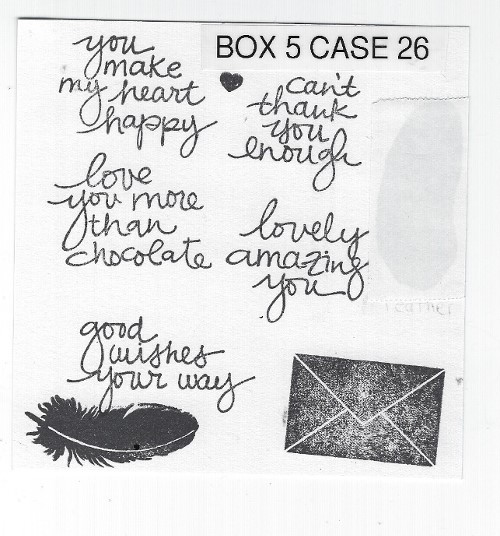 BOX 5 CASE 26
you
make
my heart
happy
can't
thank
you
enough
love
you more
than
chocolate
lovely
amazing
you
feather
good
wishes
your way